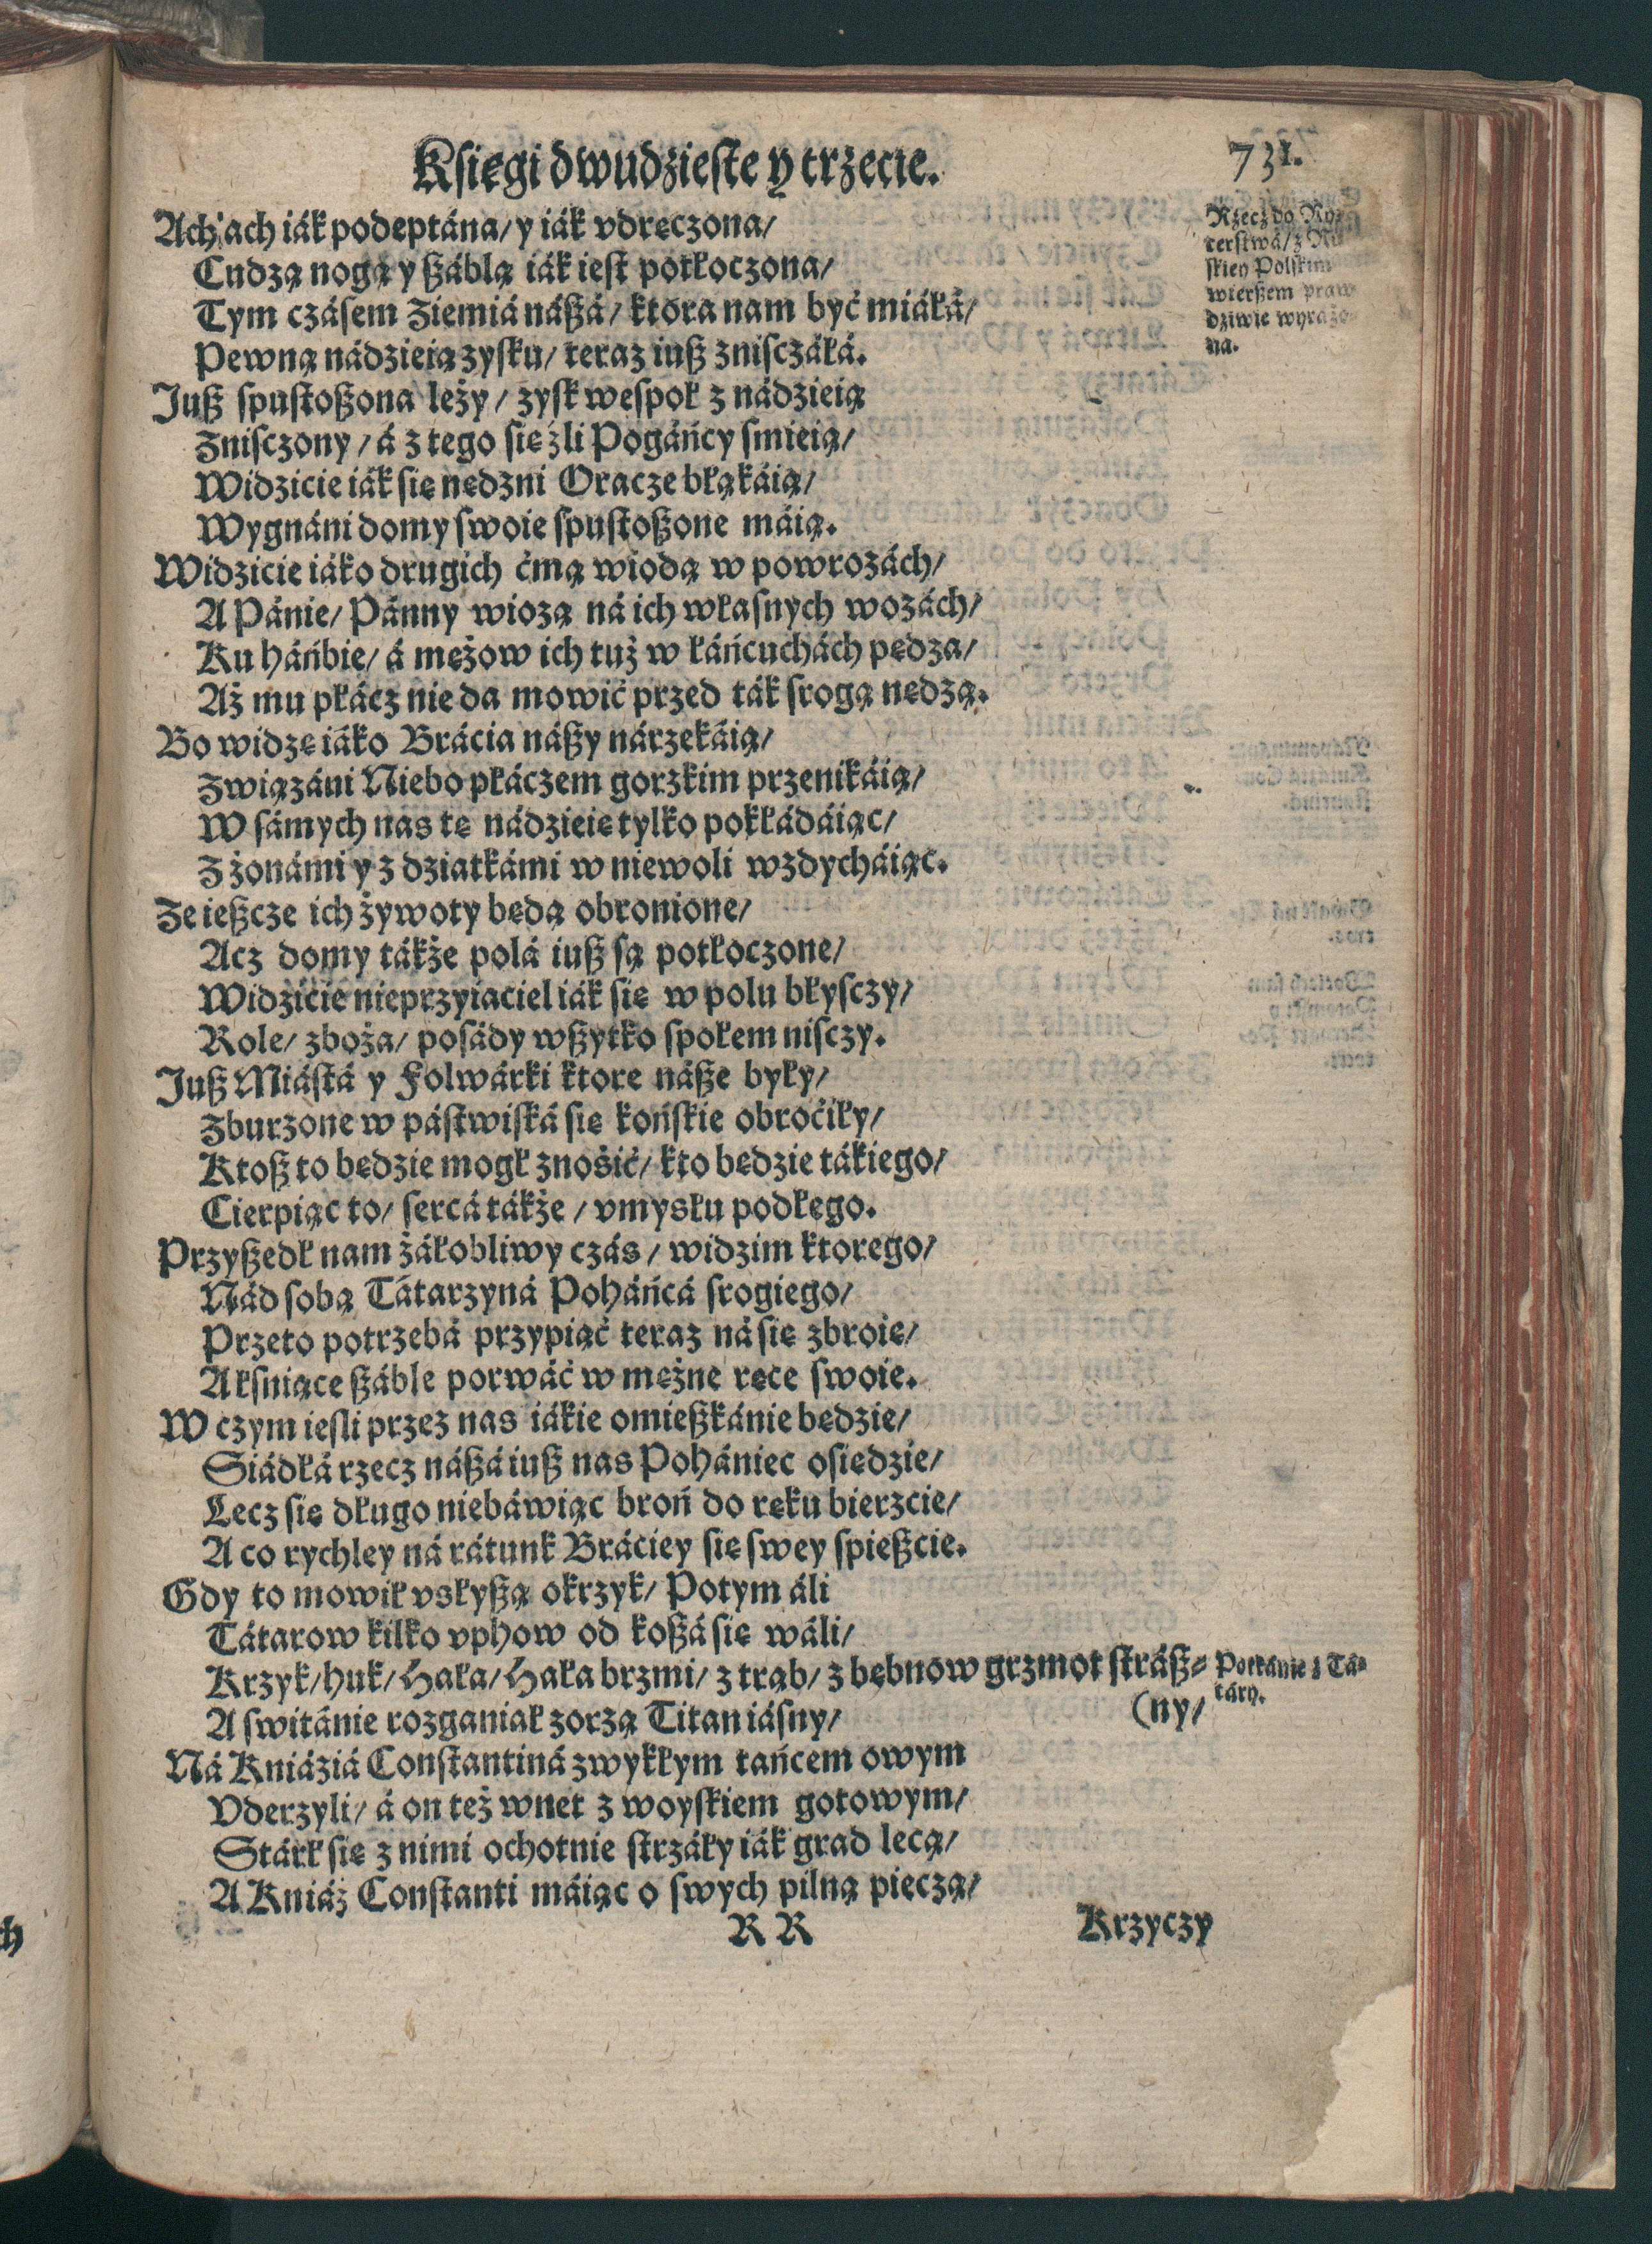 Księgi dwudzieste y trzecie.
731.
Ach ach iák podeptána/ y iák vdręczona/
Cudzą nogą y ßáblą iák iest potłoczona/
Tym czásem Ziemiá náßá/ ktora nam być miáłá/
Pewną nádzieią zysku/ teraz iuß zniſczáłá.
Juß spustoßona leży/ zysk wespoł z nádzieią
Zniſczony/ á z tego się źli Pogáńcy smieią/
Widzicie iák się nędzni Oracze błąkáią/
Wygnáni domy swoie spustoßone máią.
Widzicie iáko drugich ćmą wiodą w powrozách/
A Pánie/ Pánny wiozą ná ich własnych wozách/
Ku háńbie/ á mężow ich tuż w łáńcuchách pędza/
Aż mu płácz nie da mowić przed ták srogą nędzą.
Bo widzę iáko Brácia náßy nárzekáią/
Związáni Niebo płáczem gorzkim przenikáią/
W sámych nas tę nádzieię tylko pokłádáiąc/
Z żonámi y z dziatkámi w niewoli wzdycháiąc.
Ze ießcze ich żywoty będą obronione/
Acz domy tákże polá iuß są potłoczone/
Widzicie nieprzyiaciel iák się w polu błyſczy/
Role/ zboża/ posády wßytko społem niſczy.
Juß Miástá y Folwárki ktore náße były/
Zburzone w pástwiská się końskie obroćiły/
Ktoß to będzie mogł znośić/ kto będzie tákiego/
Cierpiąc to/ sercá tákże/ vmysłu podłego.
Przyßedł nam żáłobliwy czás/ widzim ktorego/
Nád sobą Tátarzyná Poháńcá srogiego/
Przeto potrzebá przypiąć teraz ná się zbroię/
A łsniące ßáble porwáć w mężne ręce swoie.
W czym iesli przez nas iákie omießkánie będzie/
Siádłá rzecz náßá iuß nas Pohániec osiędzie/
Lecz się długo niebáwiąc broń do ręku bierzcie/
A co rychley ná rátunk Bráciey się swey spießcie.
Gdy to mowił vsłyßą okrzyk/ Potym áli
Tátarow kilko vphow od koßá się wáli/
Krzyk/ huk/ Hala/ Hala brzmi/ z trąb/ z bębnow grzmot stráß-
(ny/
A switánie rozganiał zorzą Titan iásny/
Ná Kniáziá Constantiná zwykłym tańcem owym
Vderzyli/ á on też wnet z woyskiem gotowym/
Stárł się z nimi ochotnie strzáły iák grad lecą/
A Kniáź Constanti máiąc o swych pilną pieczą/
R R
Krzyczy
Rzecz do Ry-
terstwá/ z
skiey Polskim
wierßem praw
dziwie wyrażo-
na.
Potkánie z Tá-
táry.